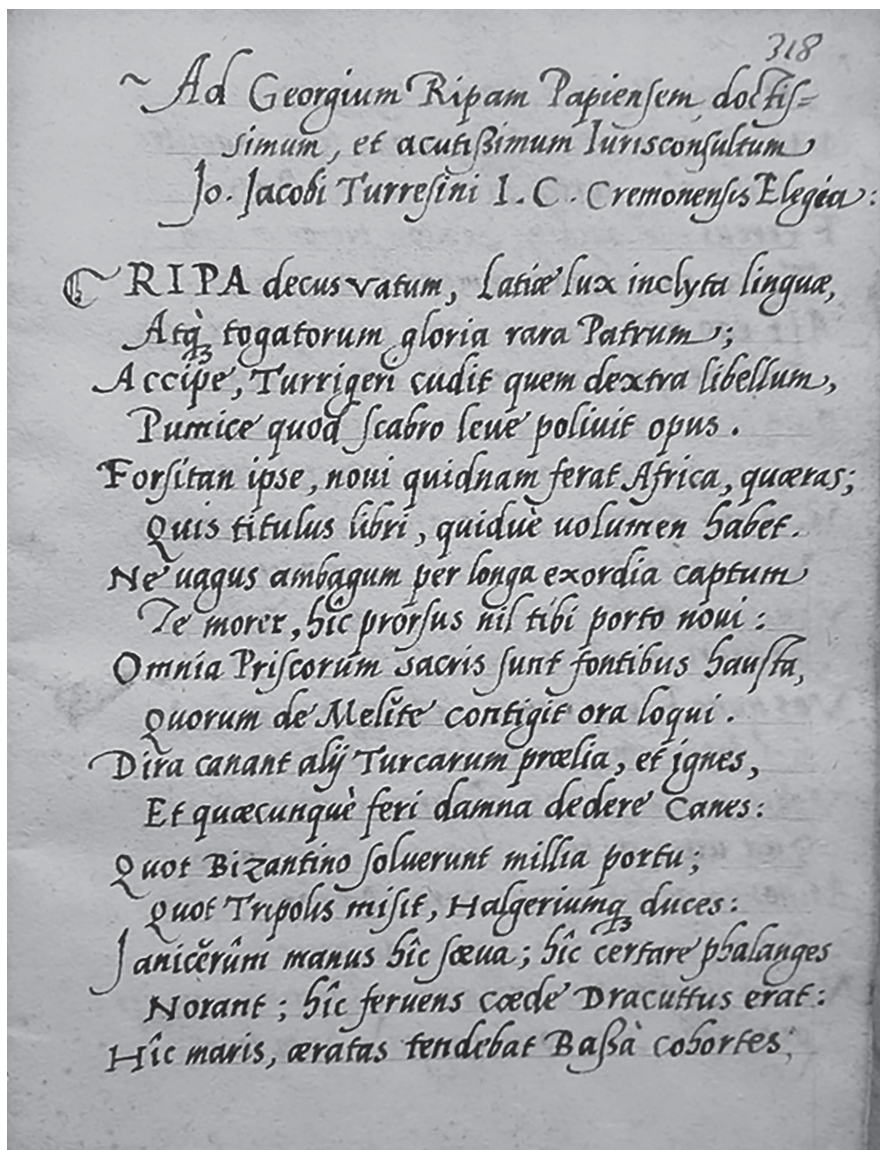 318
~ Ad Georgium Ripam Papiensem, doctis=
simum, et acutißimum Iurisconsultum
Jo. Jacobi Turresini I. C. Cremonensis Elegia:
RIPA decus vatum, Latiæ lux inclyta linguæ,
Atq; togatorum gloria rara Patrum;
Accipe, Turrigeri cudit quem dextra libellum,
Pumice quod scabro leue poliuit opus.
Forsitan ipse, noui quidnam ferat Africa, quæras;
Quis titulus libri, quiduè uolumen habet.
Ne uagus ambagum per longa exordia captum
Te morer, hîc prorsus nil tibi porto noui:
Omnia Priscorum sacris sunt fontibus hausta,
Quorum de Melite contigit ora loqui.
Dira canant alij Turcarum prœlia, et ignes,
Et quæcunquè feri damna dedere Canes:
Quot Bizantino soluerunt millia portu;
Quot Tripolis misit, Halgeriumq; duces:
Janicĕrûm manus hîc sæua; hîc certare phalanges
Norant; hîc feruens cæde Dracuttus erat:
Hîc maris, æratas tendebat Baßà cohortes;